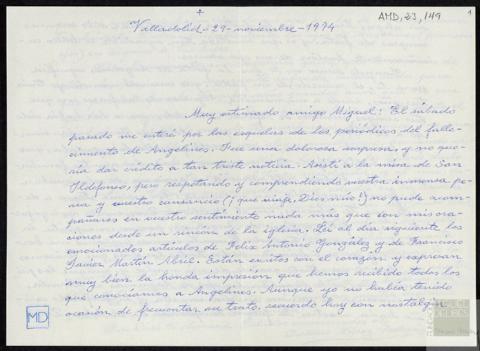 +
AMD, 33, 149
1
Valladolid - 29 - noviembre - 1974
Muy estimado amigo Miguel: El sábado
pasado me enteré por las esquelas de los periódicos del falle-
cimiento de Angelines. Fue una dolorosa sorpresa, y no que-
ría dar crédito a tan triste noticia. Asistí a la misa de San
Ildefonso, pero respetando y comprendiendo vuestra inmensa pe-
na y vuestro cansancio (¡qué viaje, Dios mío!) no pude acom-
pañaros en vuestro sentimiento nada más que con mis ora-
ciones desde un rincón de la iglesia. Leí al día siguiente los
emocionados artículos de Félix Antonio González y de Francisco
Javier Martín Abril. Están escritos con el corazón y expresan
muy bien la honda impresión que hemos recibido todos los
que conocíamos a Angelines. Aunque yo no había tenido
ocasión de frecuentar su trato, recuerdo hoy con nostalgia
MD